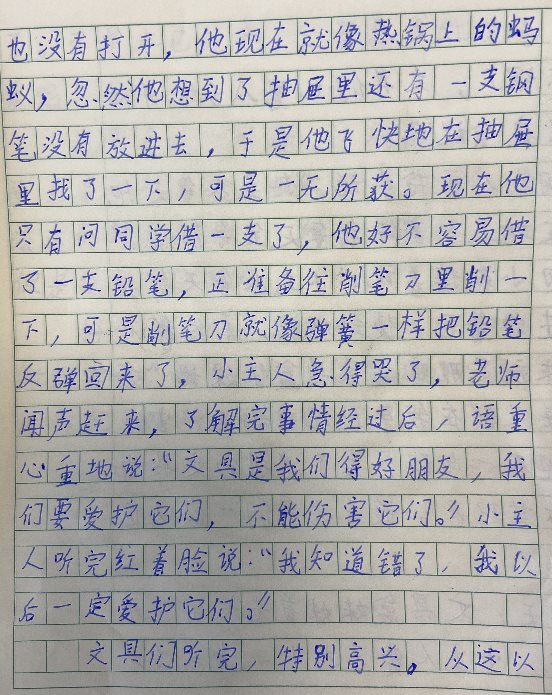 也没有打开，他现在就像热锅上的蚂
蚁，忽然他想到了抽屉里还有一支钢
笔没有放进去，于是他飞快地在抽屉
里找了一下，可是一无所获。现在他
只有问同学借一支了，他好不容易借
了一支铅笔，正准备往削笔刀里削一
下，可是削笔刀就像弹簧一样把铅笔
反弹回来了，小主人急得哭了，老师
闻声赶来，了解完事情经过后，语重
心重地说：“文具是我们得好朋友，我
们要爱护它们，不能伤害它们。”小主
人听完红着脸说：“我知道错了，我以
后一定爱护它们。”
文具们听完，特别高兴。从这以